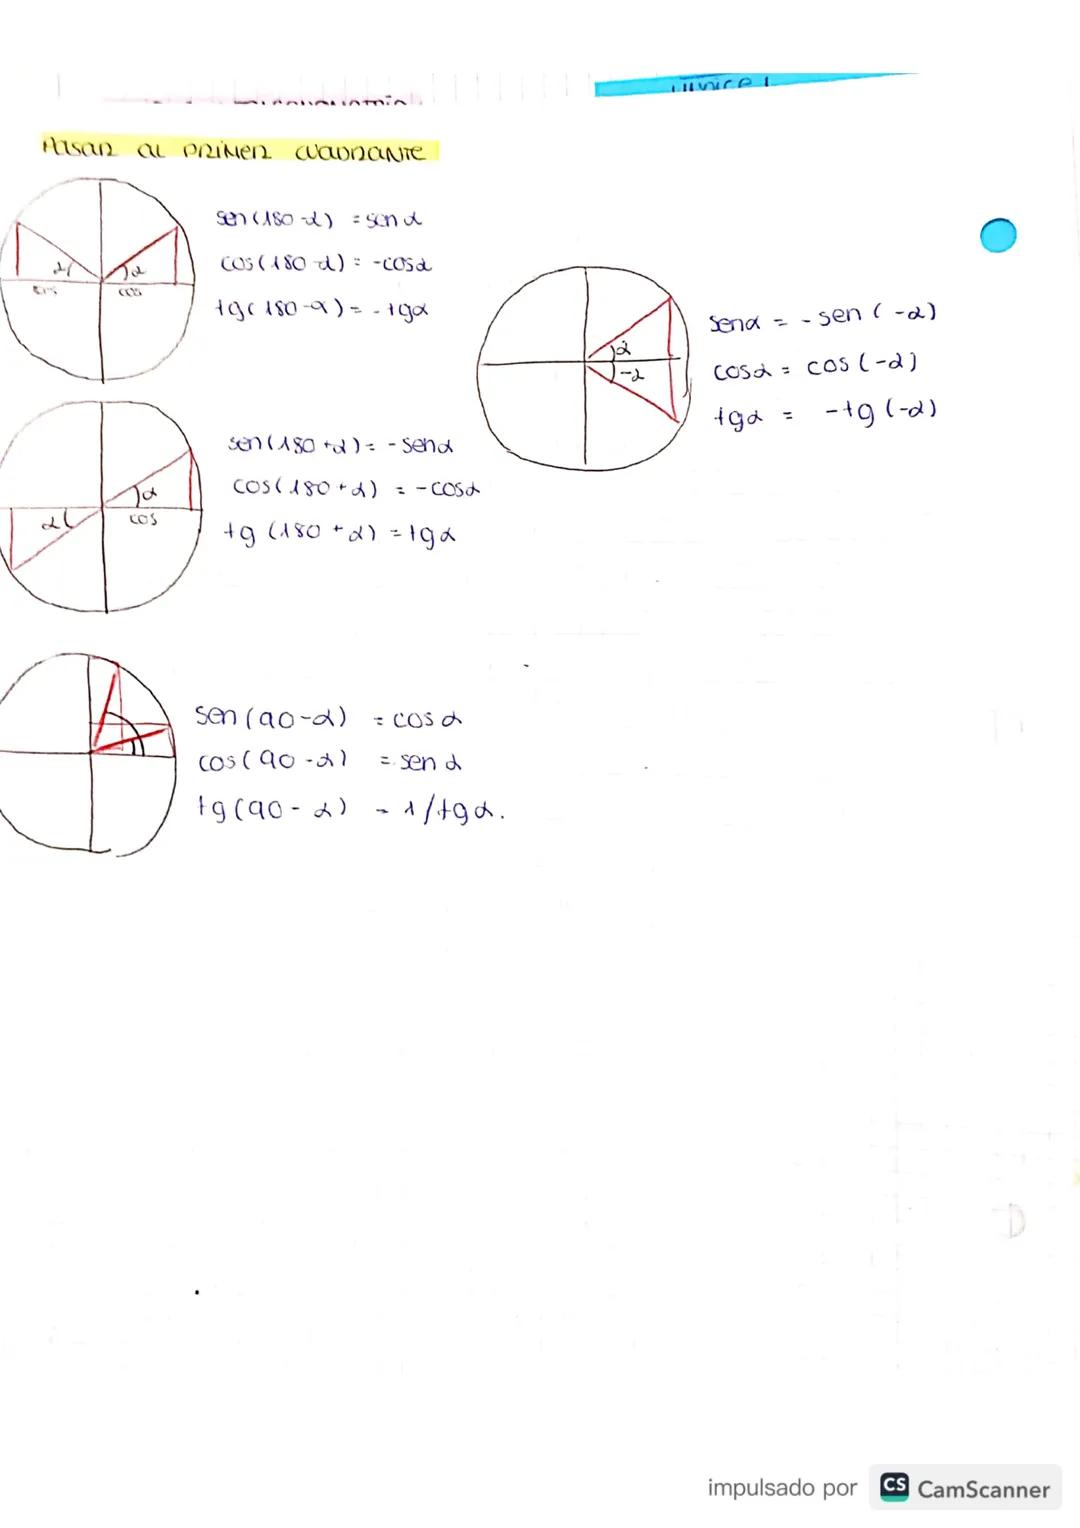 Pasar al primer cuadrante
sen (180-α) = sen α
cos (180-α) = -cos α
tg (180-α) = -tg α
α α
cos
sen α = - sen (-α)
cos α = cos (-α)
tg α = -tg (-α)
α
-α
sen (180+α) = - sen α
cos (180+α) = -cos α
tg (180+α) = tg α
α
α cos
sen (90-α) = cos α
cos (90-α) = sen α
tg (90-α) = 1/tg α.
impulsado por CS CamScanner